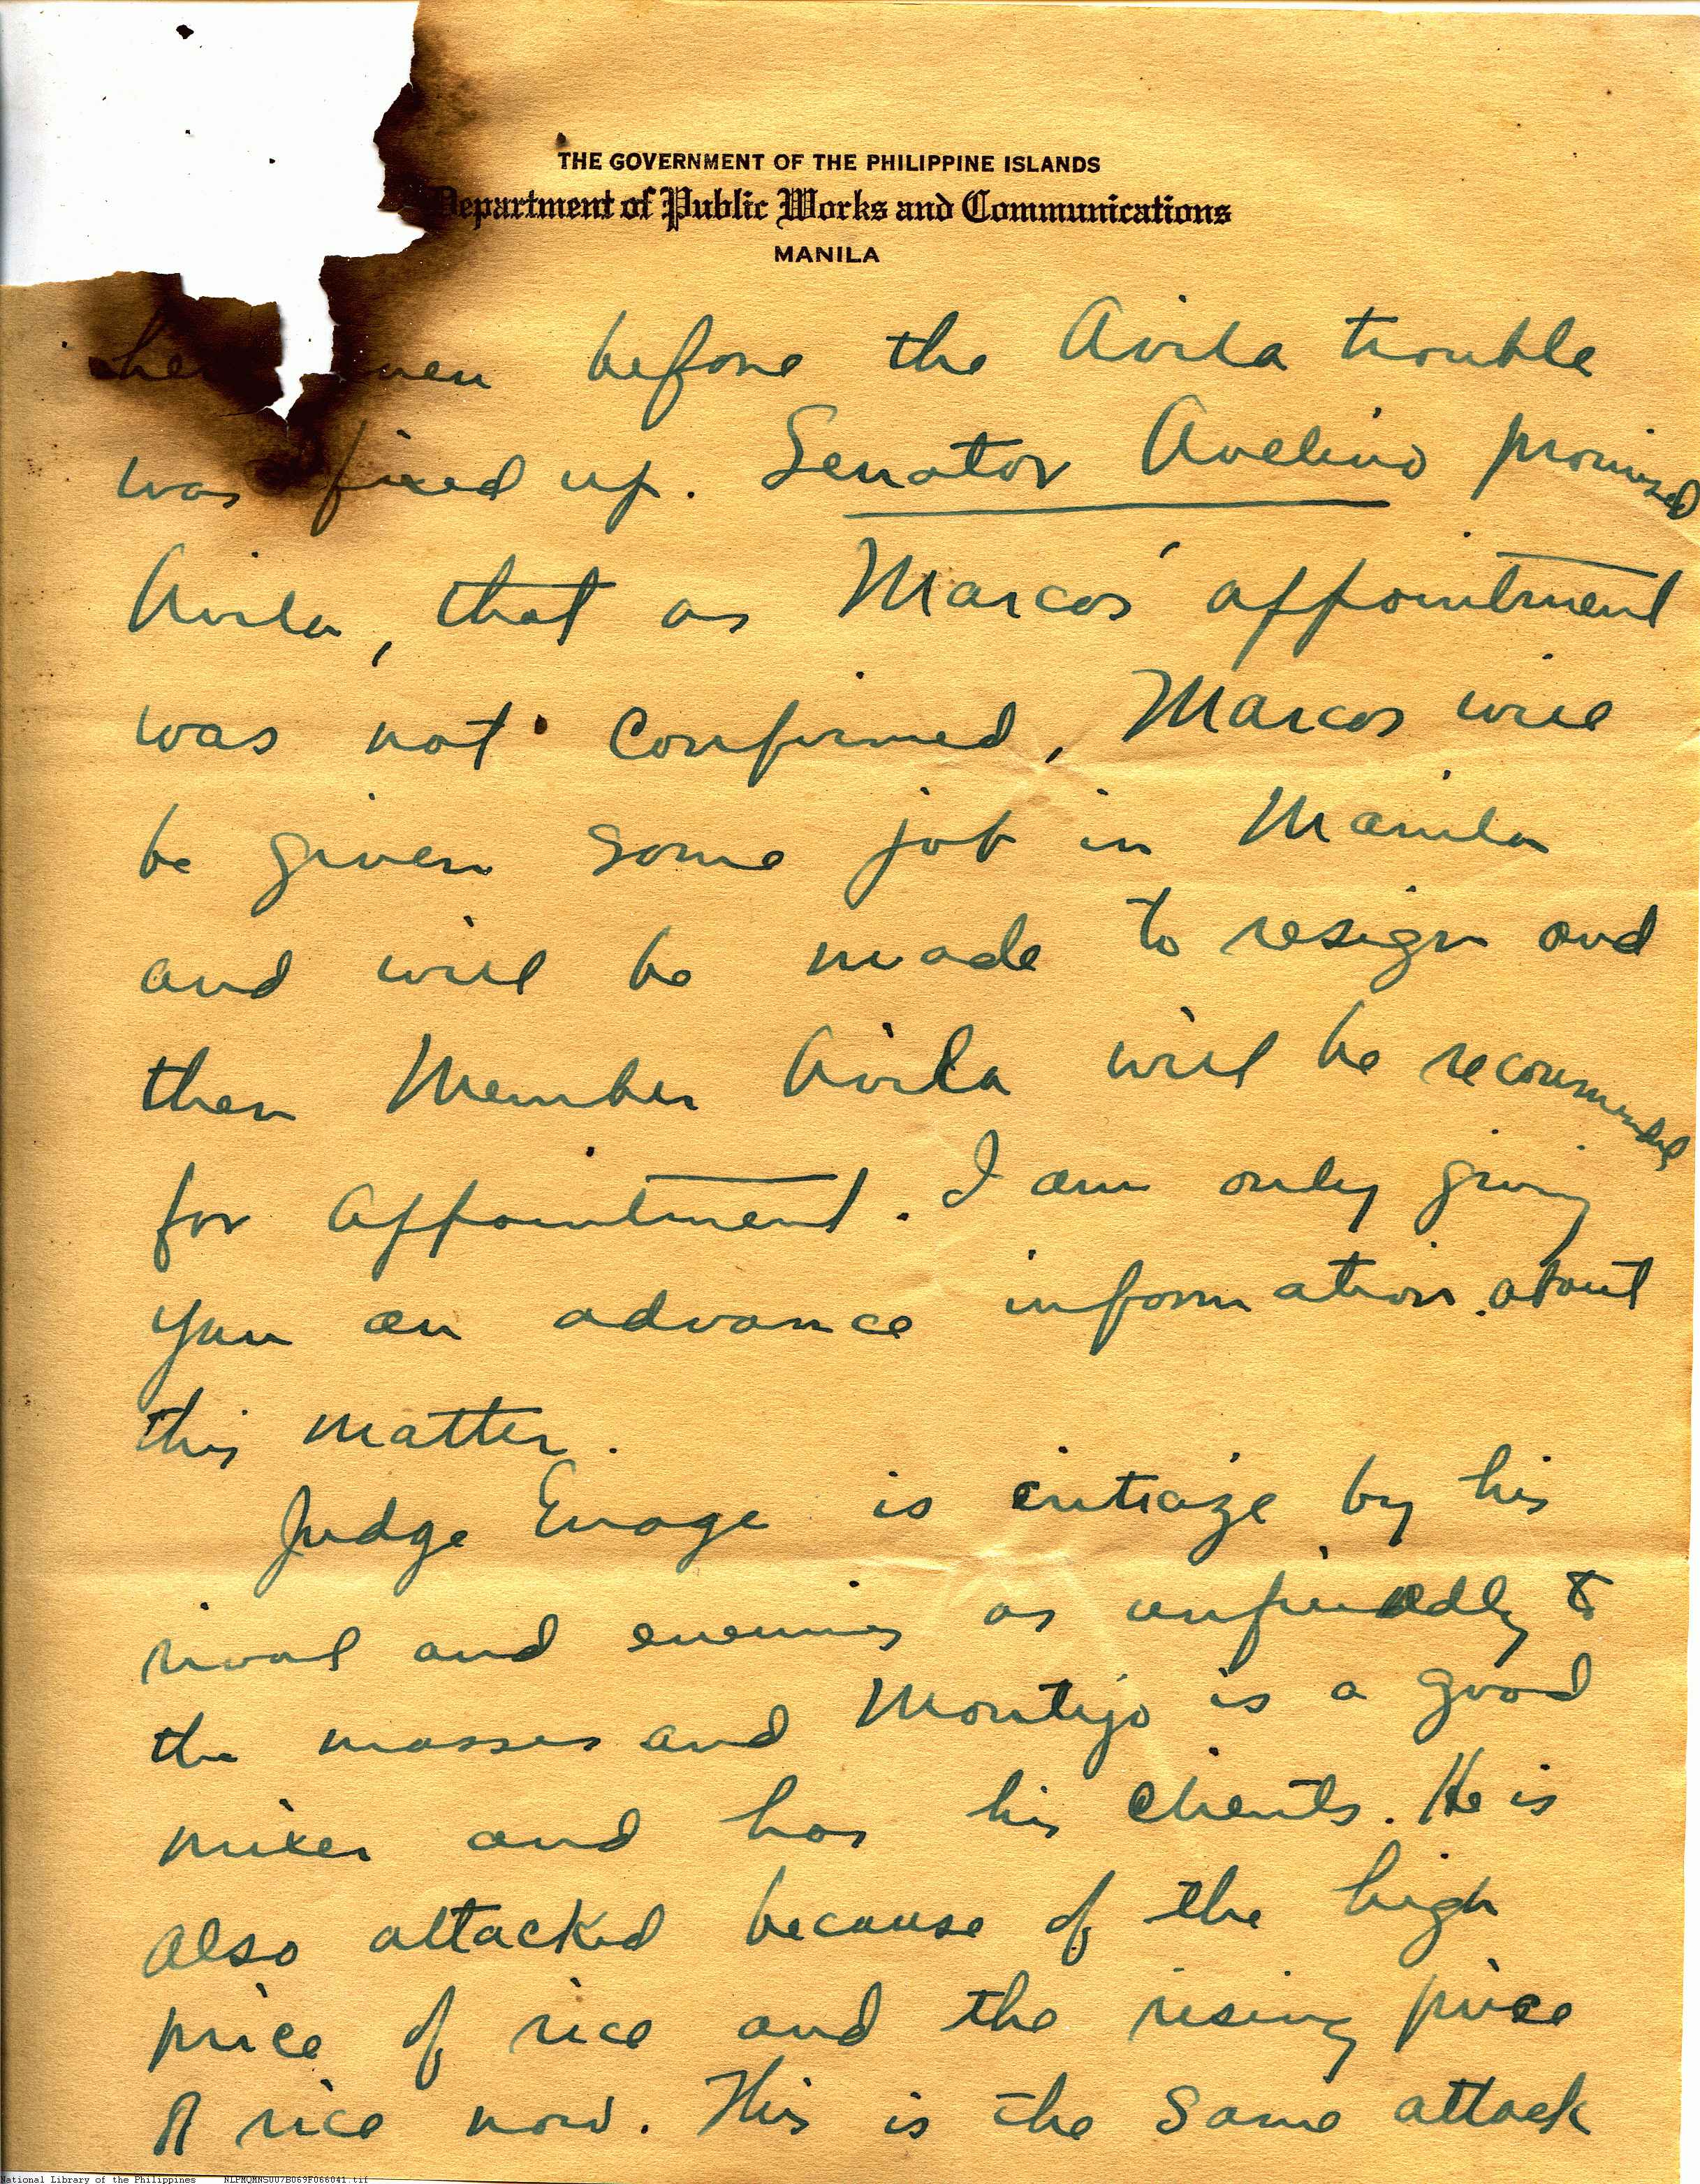 THE GOVERNMENT OF THE PHILIPPINE ISLANDS
Department of Public Works and Communications
MANILA
before the Avila trouble
was fixed up. Senator Avelino promised
Avila, that as Marcos' appointment
was not confirmed, Marcos will
be given some job in Manila
and will be made to resign and
then Member Avila will be recommended
for appointment. I am only giving
you an advance information about
this matter.
Judge Enage is critize by his
rival and enemies as unfriendly to
the masses and Montejo is a good
mixer and has his clients. He is
also attacked because of the high
price of rice and the rising price
of rice now. This is the same attack
National Library of the Philippines NLPMQMNS007B069F066041.tif